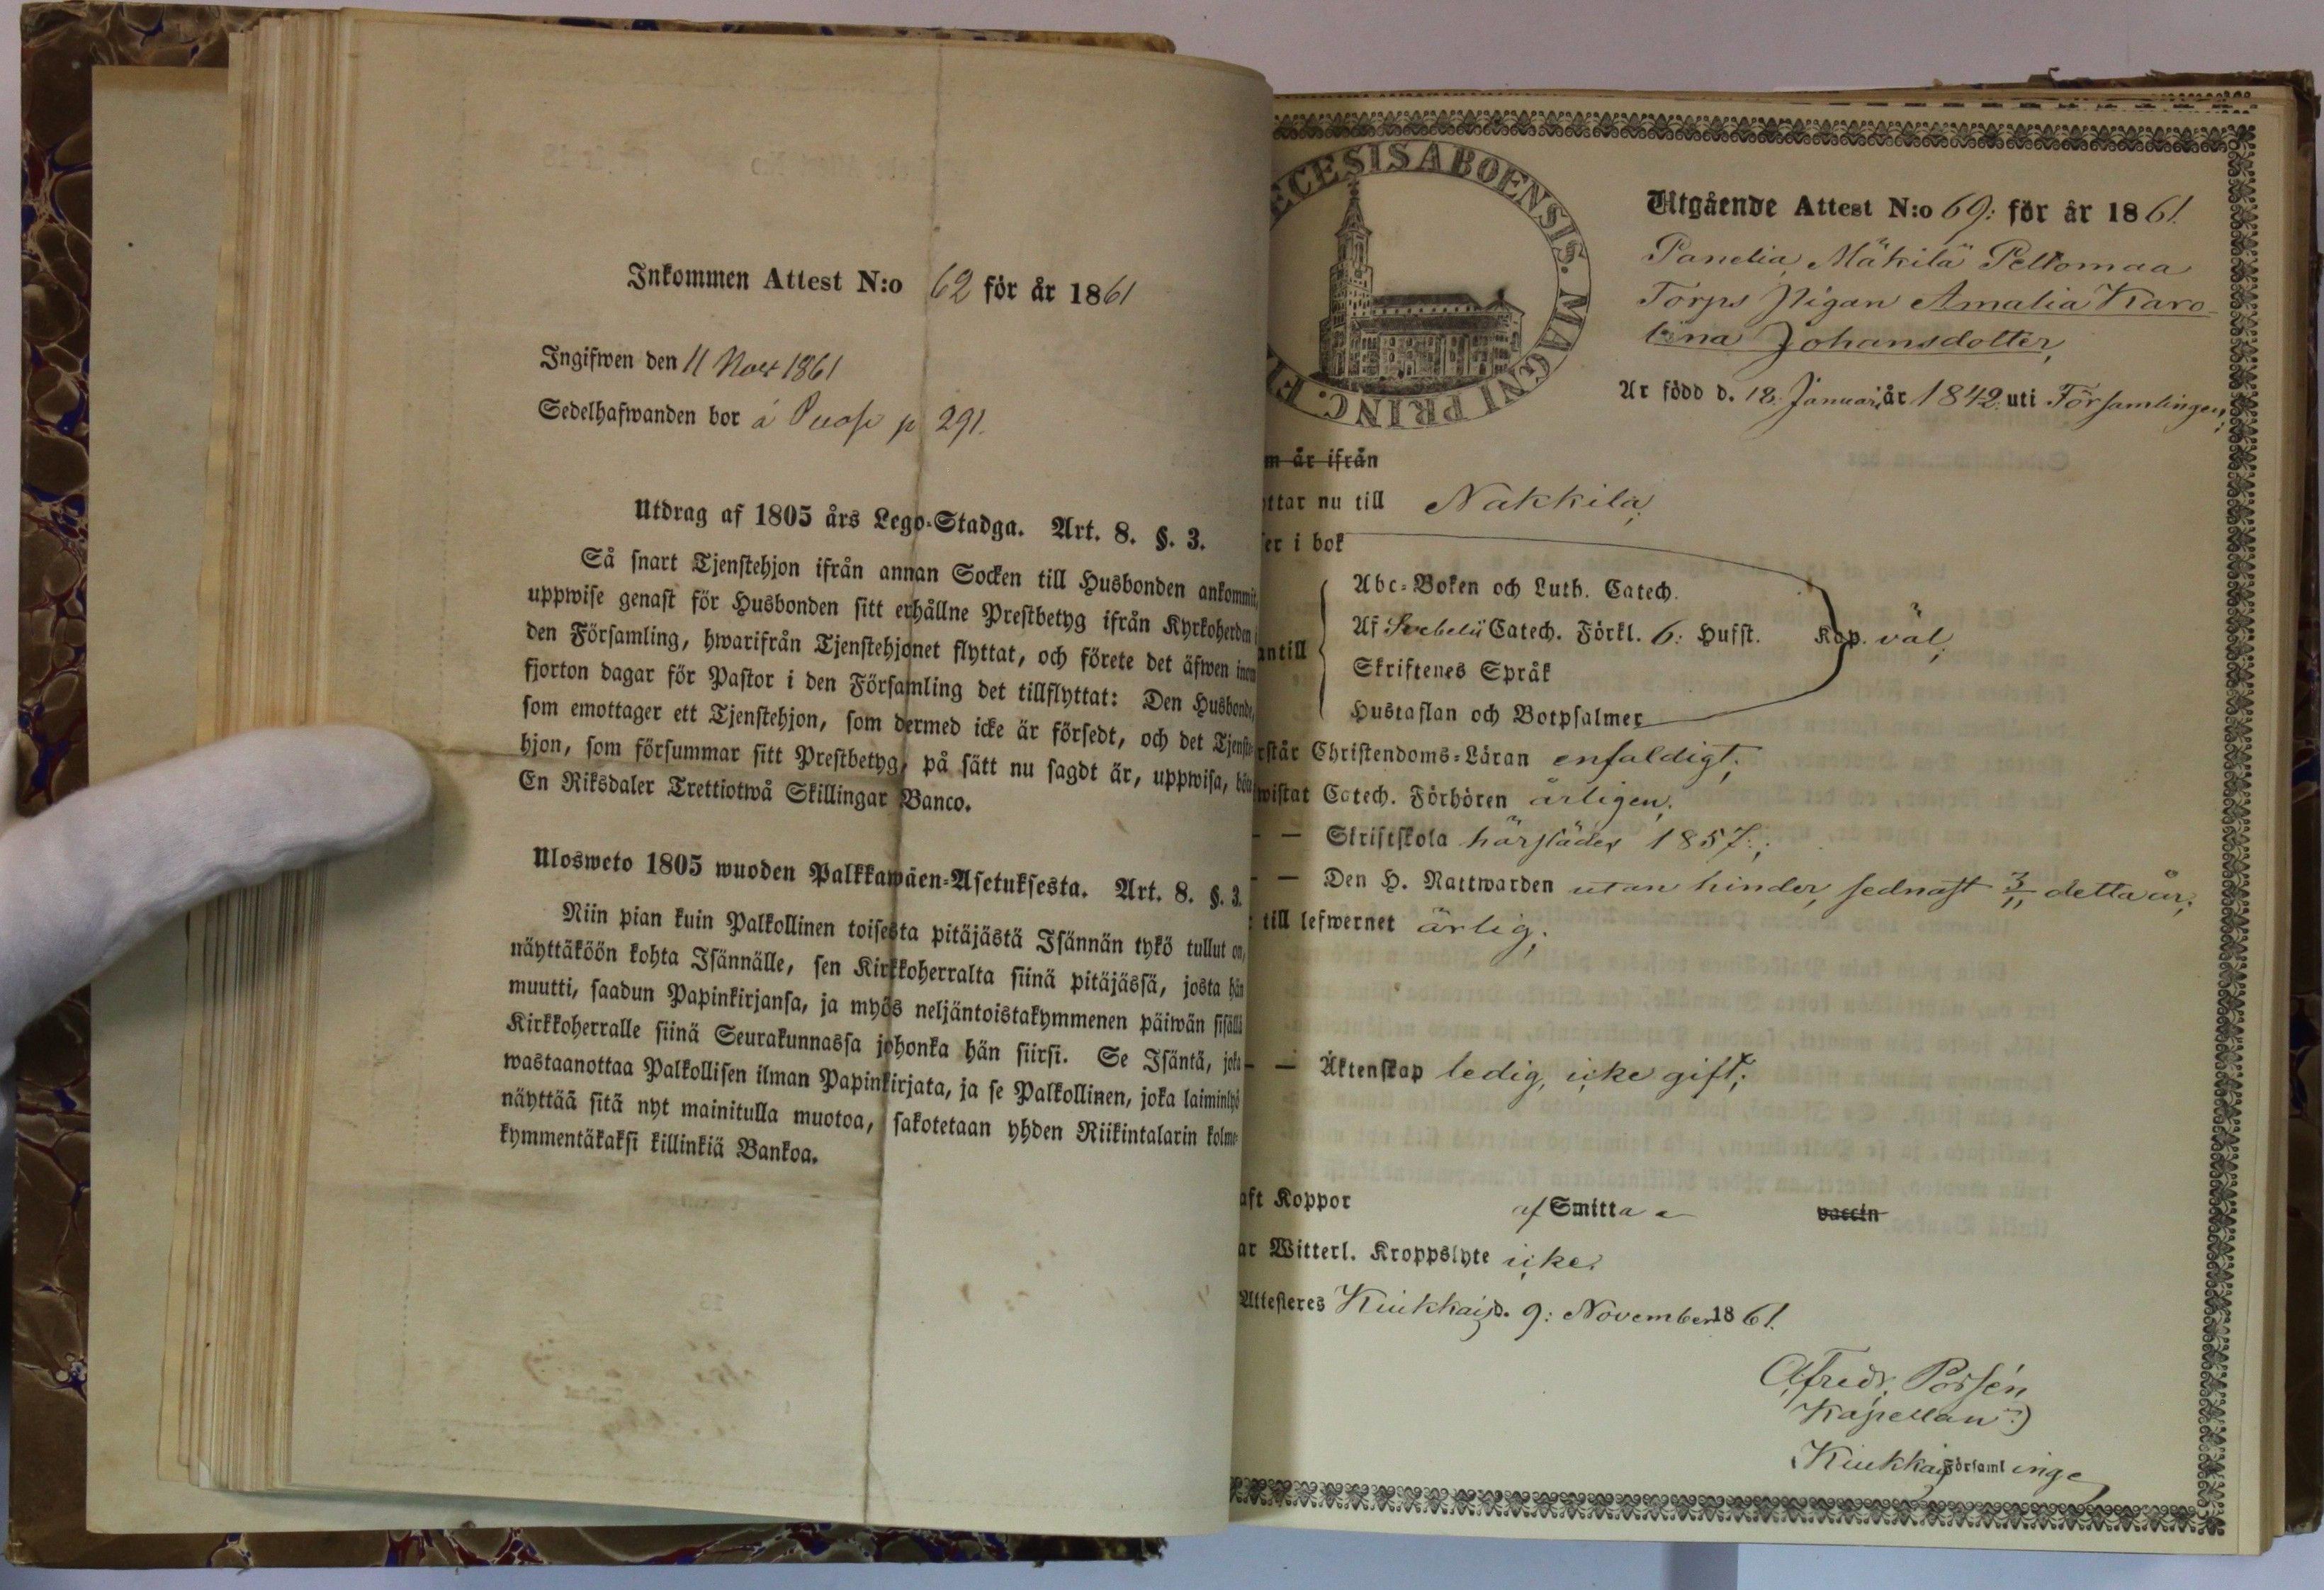 Inkommen Attest N:o 62 för år 1861
Ingifwen den 11 Novr 1861
Sedelhafwanden bor á p 291.
Utdrag af 1805 års Lego-Stadga. Art. 8. §. 3.
Så snart Tjenstehjon ifrån annan Socken till Husbonden ankommit,
uppwise genast för Husbonden sitt erhållne Prestbetyg ifrån Kyrkoherden i
den Församling, hwarifrån Tjenstehjonet flyttat, och förete det äfwen inom
fjorton dagar för Pastor i den Församling det tillflyttat: Den Husbonde,
som emottager ett Tjenstehjon, som dermed icke är försedt, och det Tjenste-
hjon, som försummar sitt Prestbetyg, på sätt nu sagdt är, uppwisa, böte
En Riksdaler Trettiotwå Skillingar Banco.
Ulosweto 1805 wuoden Palkkawäen-Asetuksesta. Art. 8. §. 3.
Niin pian kuin Palkollinen toisesta pitäjästä Isännän tykö tullut on,
näyttäköön kohta Isännälle, sen Kirkkoherralta siinä pitäjässä, josta hän
muutti, saadun Papinkirjansa, ja myös neljäntoistakymmenen päiwän sisällä
Kirkkoherralle siinä Seurakunnassa johonka hän siirsi. Se Isäntä, joka
wastaanottaa Palkollisen ilman Papinkirjata, ja se Palkollinen, joka laiminlyö
näyttää sitä nyt mainitulla muotoa, sakotetaan yhden Riikintalarin kolme-
kymmentäkaksi killinkiä Bankoa.
ECESIS ABOENSIS. MAGNI PRINC. FI
Utgående Attest N:o 69: för år 1861.
Panelia Mäkilä Peltomaa
Torps Pigan Amalia Karo-
lina Johansdotter,
Är född d. 18. Januari år 1842: uti Församlingen;
m är ifrån
yttar nu till Nakkila;
ser i bok
antill
Abc-Boken och Luth. Catech.
Af Svebelii Catech. Förkl. 6: Hufst. Kap. väl;
Skriftenes Språk
Hustaflan och Botpsalmer
rstår Christendoms-Läran enfaldigt;
wistat Catech. Förhören årligen;
— — Skriftskola härstädes 1857:;
— — Den H. Nattwarden utan hinder, sednast 3/11 detta år;
till lefwernet ärlig;
— — Äktenskap ledig, icke gift;
aft Koppor af Smitta vaccin
ar Witterl. Kroppslyte icke.
Attesteres Kiukkais d. 9: November 1861.
Alfredr. Porsén
Kapellan
Kiukkais Församlinge